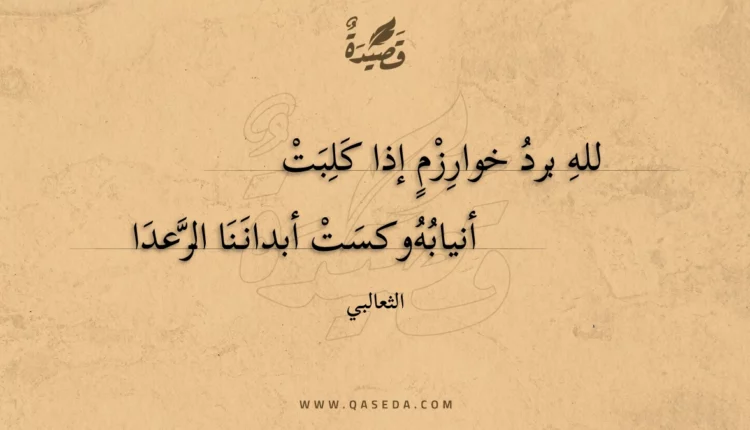 قَصِيْدَةٌ
للهِ بردُ خوارِزْمٍ إذا كَلِبَتْ
أنيابُهُ وكسَتْ أبدانَنَا الرَّعدَا
الثعالبي
WWW.QASEDA.COM